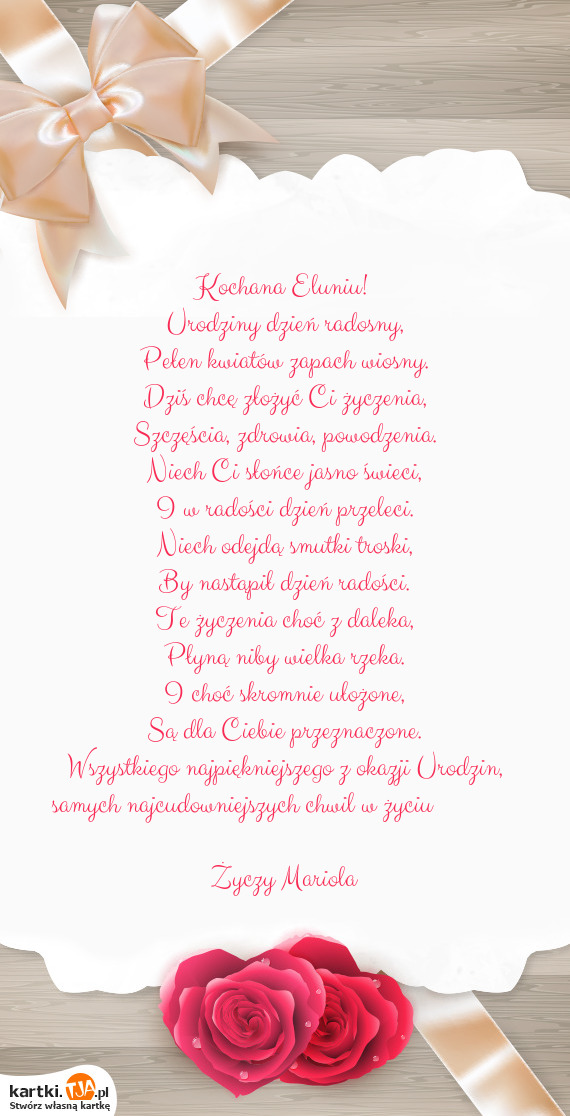 Kochana Eluniu!
Urodziny dzień radosny,
Pełen kwiatów zapach wiosny.
Dziś chcę złożyć Ci życzenia,
Szczęścia, zdrowia, powodzenia.
Niech Ci słońce jasno świeci,
I w radości dzień przeleci.
Niech odejdą smutki troski,
By nastąpił dzień radości.
Te życzenia choć z daleka,
Płyną niby wielka rzeka.
I choć skromnie ułożone,
Są dla Ciebie przeznaczone.
Wszystkiego najpiękniejszego z okazji Urodzin,
samych najcudowniejszych chwil w życiu
Życzy Mariola
kartki.TJA.pl
Stwórz własną kartkę